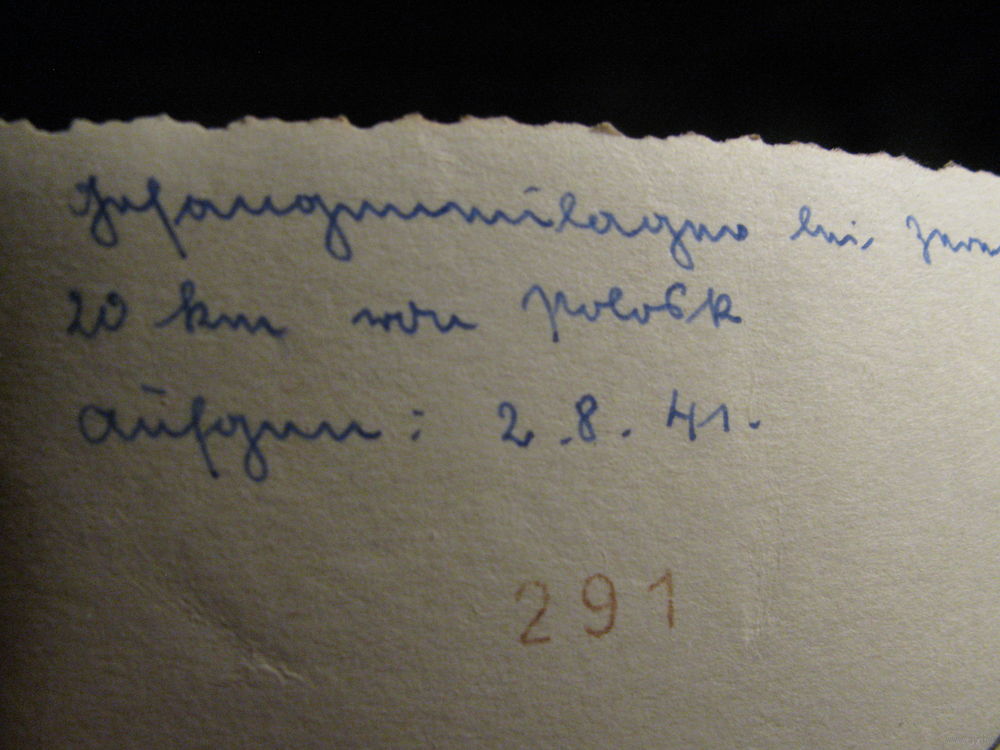 Gefangenenlager bei
20 km von Polosk
Aufgen: 2.8.41.
291